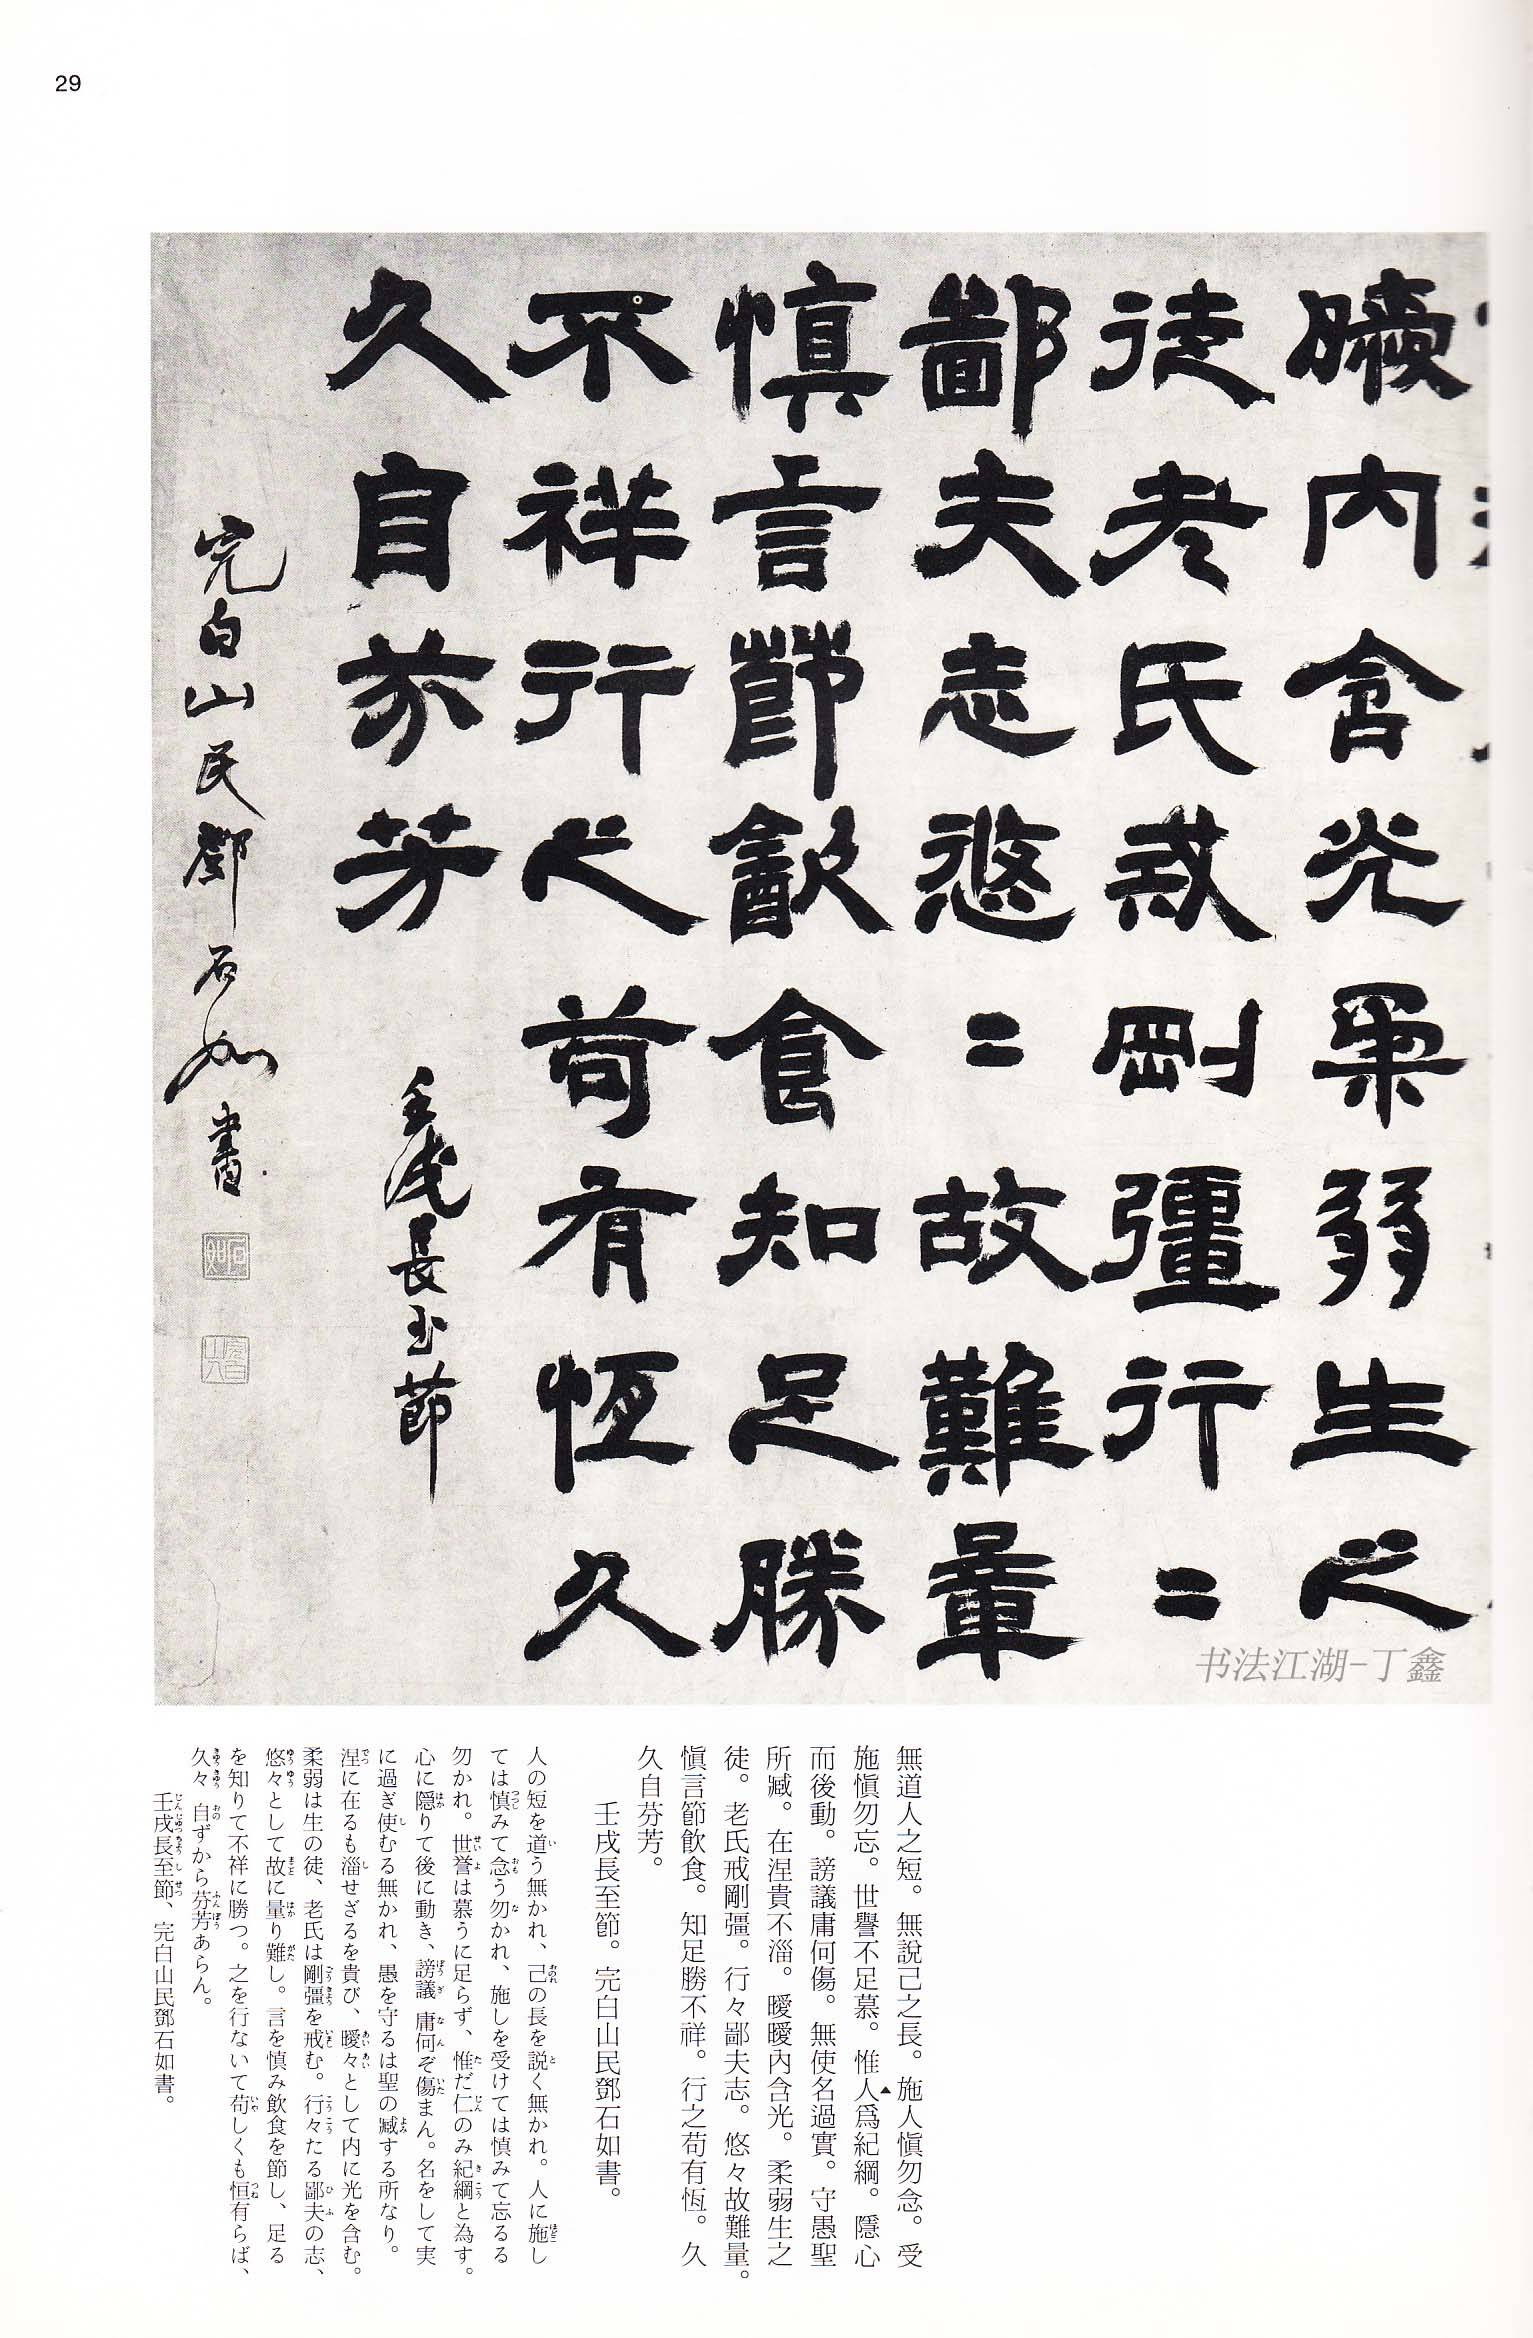 29
曖內含光柔弱生之
徒老氏戒剛彊行〻
鄙夫志悠〻故難量
慎言節飲食知足勝
不祥行之苟有恆久
久自芬芳
壬戌長至節
完白山民鄧石如書
石如
书法江湖-丁鑫
無道人之短。無說己之長。施人愼勿念。受
施愼勿忘。世譽不足慕。惟人爲紀綱。隱心
而後動。謗議庸何傷。無使名過實。守愚聖
所臧。在涅貴不淄。曖曖內含光。柔弱生之
徒。老氏戒剛彊。行々鄙夫志。悠々故難量。
愼言節飮食。知足勝不祥。行之苟有恆。久
久自芬芳。
壬戌長至節。完白山民鄧石如書。
人の短を道う無かれ、己の長を説く無かれ。人に施し
ては慎みて念う勿かれ、施しを受けては慎みて忘るる
勿かれ。世誉は慕うに足らず、惟だ仁のみ紀綱と為す。
心に隠りて後に動き、謗議庸何ぞ傷まん。名をして実
に過ぎ使むる無かれ、愚を守るは聖の臧する所なり。
涅に在るも淄せざるを貴び、曖々として内に光を含む。
柔弱は生の徒、老氏は剛彊を戒む。行々たる鄙夫の志、
悠々として故に量り難し。言を慎み飲食を節し、足る
を知りて不祥に勝つ。之を行ないて苟しくも恒有らば、
久々自ずから芬芳あらん。
壬戌長至節、完白山民鄧石如書。